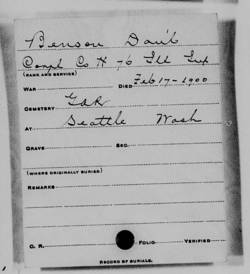 Benson Dan'l
Corpl Co K 76 Ill Inf
(RANK AND SERVICE)
WAR DIED Feb 17-1900
CEMETERY GAR
AT Seattle Wash
GRAVE SEC.
(WHERE ORIGINALLY BURIED)
REMARKS
G. R. FOLIO VERIFIED
RECORD OF BURIALS.